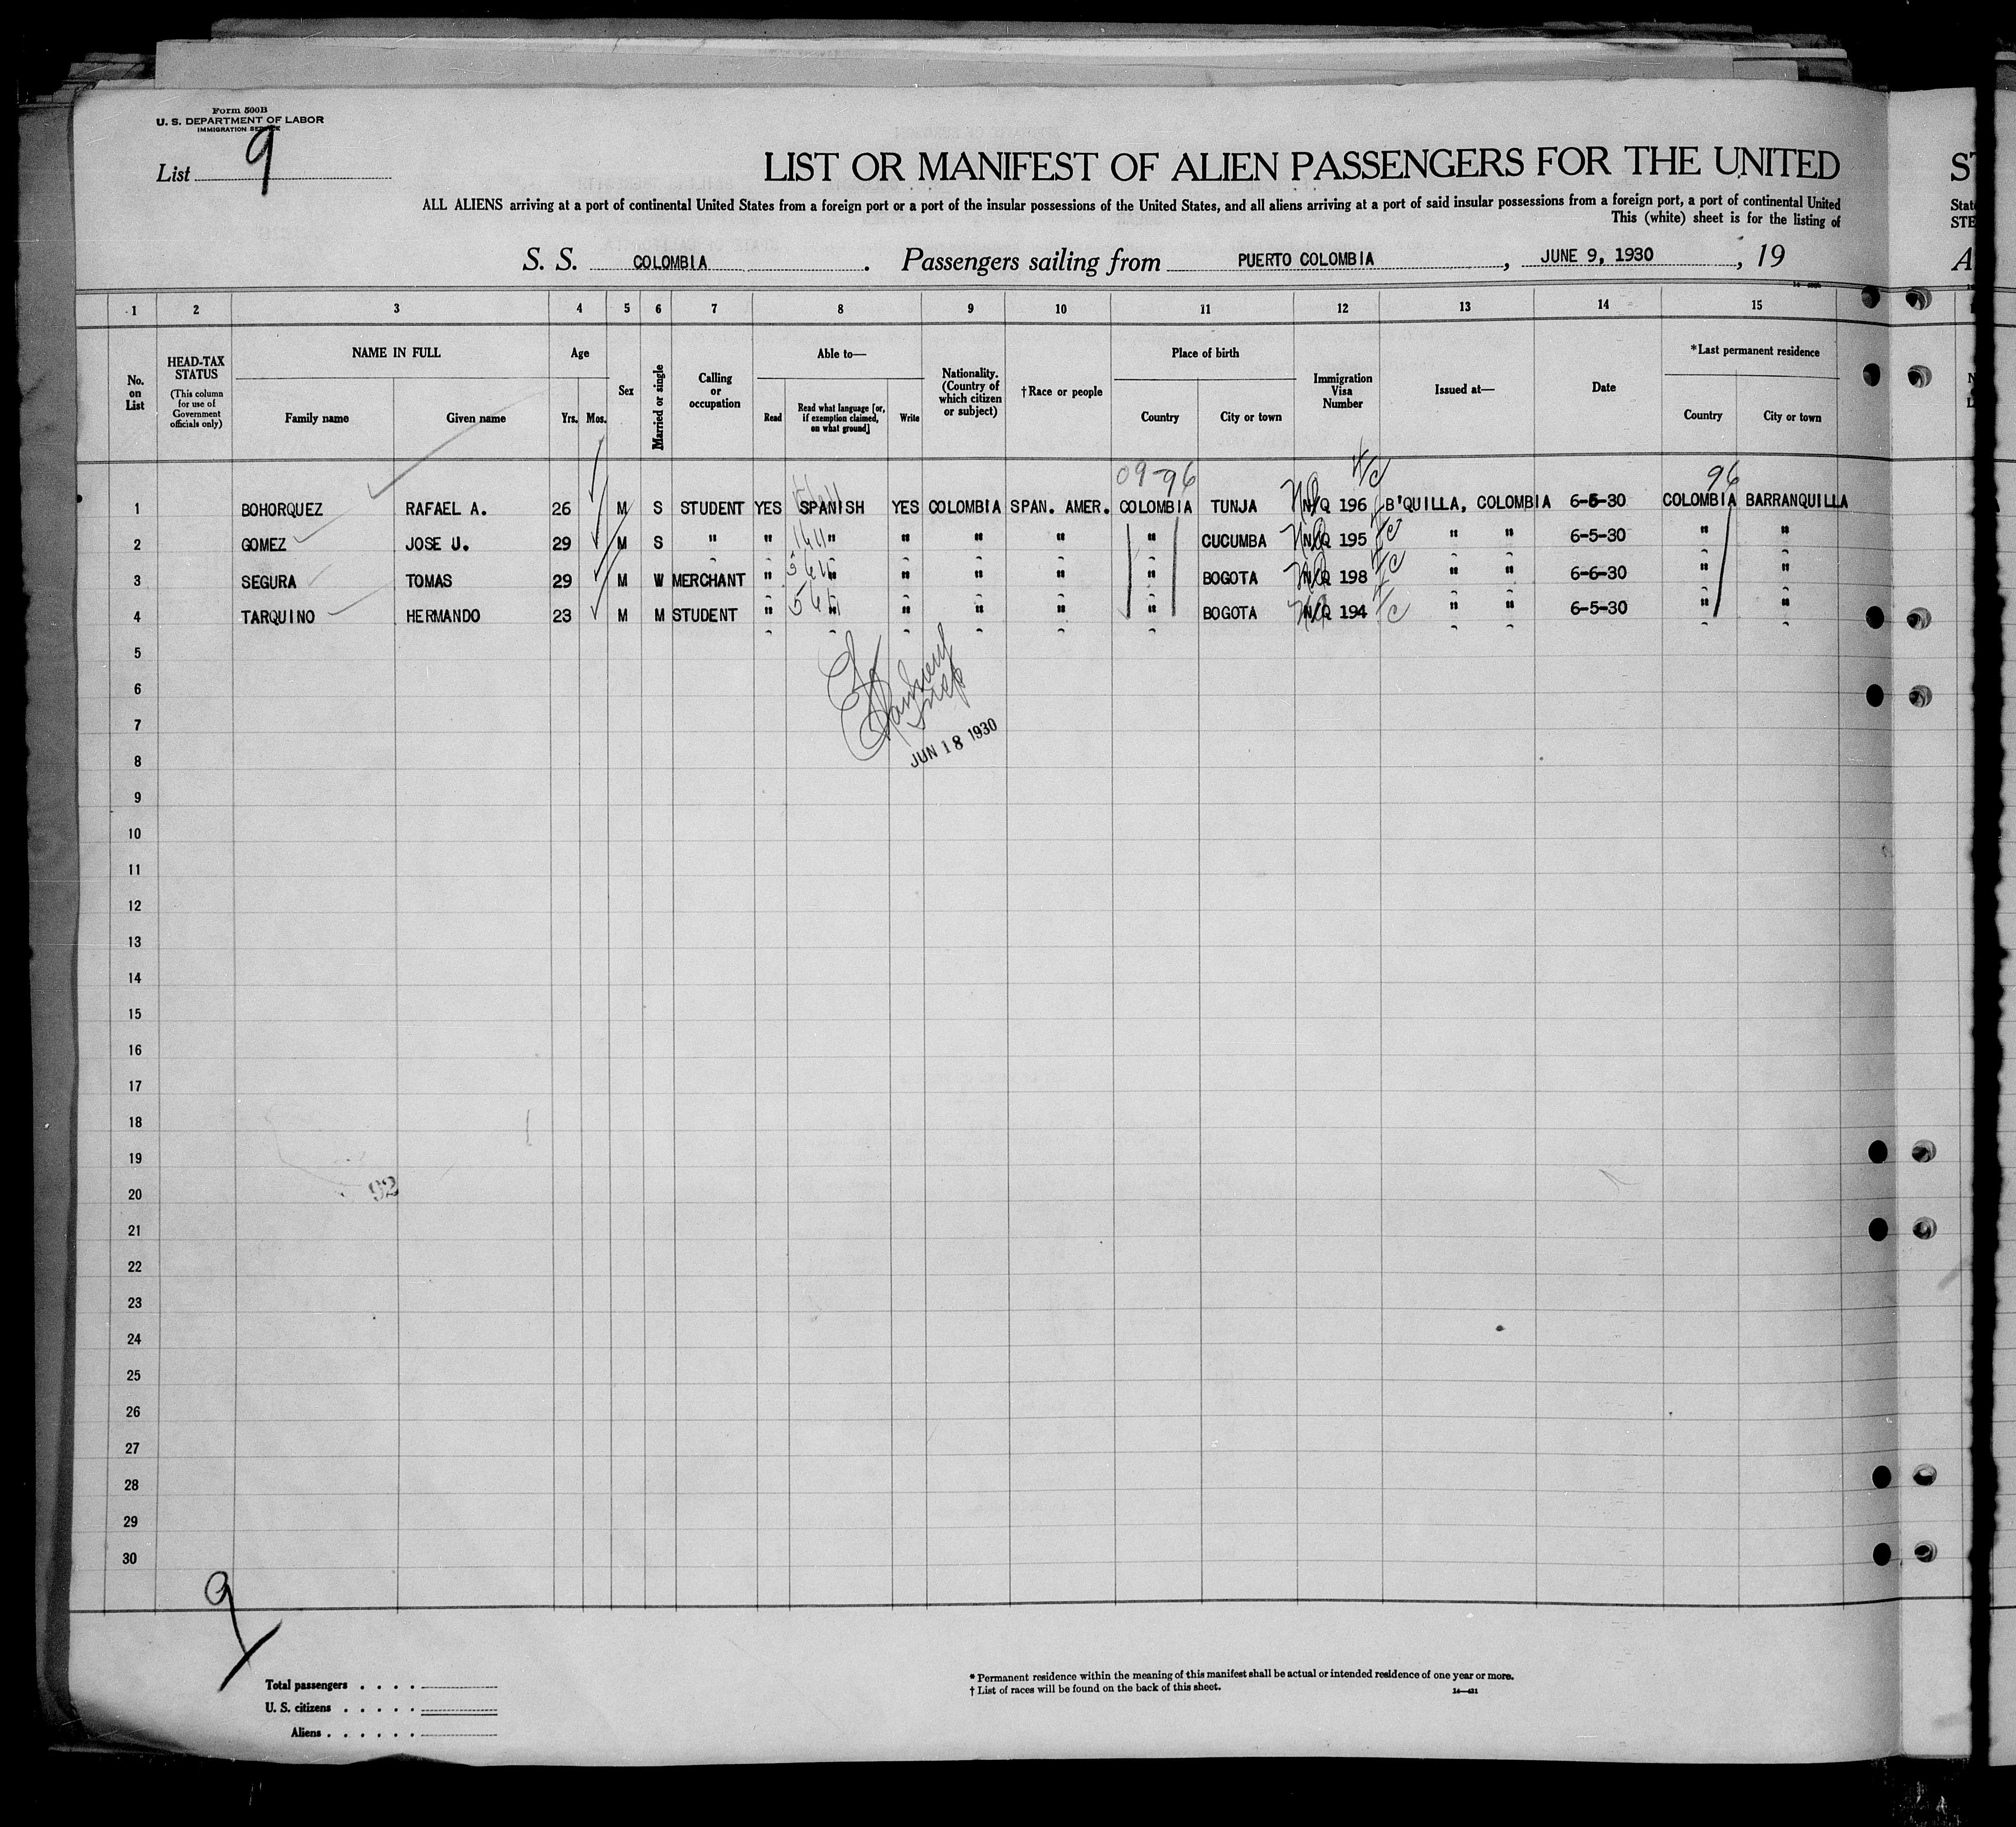 Form 500B
U. S. DEPARTMENT OF LABOR
IMMIGRATION SERVICE
List 9
LIST OR MANIFEST OF ALIEN PASSENGERS FOR THE UNITED
ST
ALL ALIENS arriving at a port of continental United States from a foreign port or a port of the insular possessions of the United States, and all aliens arriving at a port of said insular possessions from a foreign port, a port of continental United
This (white) sheet is for the listing of
State
STE
S. S. COLOMBIA. Passengers sailing from PUERTO COLOMBIA, JUNE 9, 1930, 19
A
1 2 3 4 5 6 7 8 9 10 11 12 13 14 15
No. on List
HEAD-TAX STATUS (This column for use of Government officials only)
NAME IN FULL
Family name Given name
Age
Yrs. Mos.
Sex
Married or single
Calling or occupation
Able to—
Read Read what language [or, if exemption claimed, on what ground] Write
Nationality. (Country of which citizen or subject)
†Race or people
Place of birth
Country City or town
Immigration Visa Number
Issued at—
Date
*Last permanent residence
Country City or town
09-96 96
1 BOHORQUEZ RAFAEL A. 26 M S STUDENT YES SPANISH YES COLOMBIA SPAN. AMER. COLOMBIA TUNJA N/Q 196 B'QUILLA, COLOMBIA 6-5-30 COLOMBIA BARRANQUILLA
2 GOMEZ JOSE U. 29 M S " " " " " " " CUCUMBA N/Q 195 " " 6-5-30 " "
3 SEGURA TOMAS 29 M W MERCHANT " " " " " " BOGOTA N/Q 198 " " 6-6-30 " "
4 TARQUINO HERMANDO 23 M M STUDENT " " " " " " BOGOTA N/Q 194 " " 6-5-30 " "
5
6
7
JUN 18 1930
8
9
10
11
12
13
14
15
16
17
18
19
92
20
21
22
23
24
25
26
27
28
29
30
9
Total passengers . . . .
U. S. citizens . . . . .
Aliens . . . . . .
* Permanent residence within the meaning of this manifest shall be actual or intended residence of one year or more.
† List of races will be found on the back of this sheet.